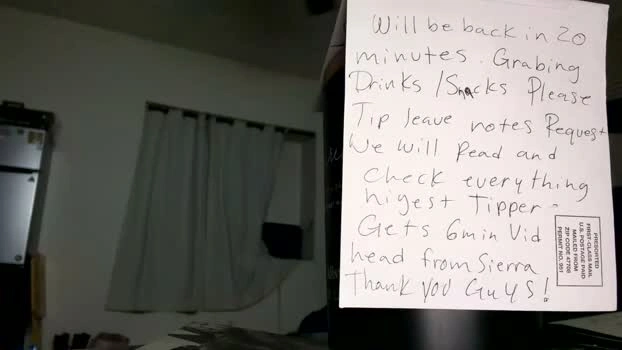 Will be back in 20
minutes. Grabing
Drinks / Snacks Please
Tip leave notes Request
We will Read and
check everything
higest Tipper -
Gets 6min Vid
head from Sierra
Thank you Guys!
PRESORTED
FIRST CLASS MAIL
U.S. POSTAGE PAID
MAILED FROM
ZIP CODE 47708
PERMIT NO. 951